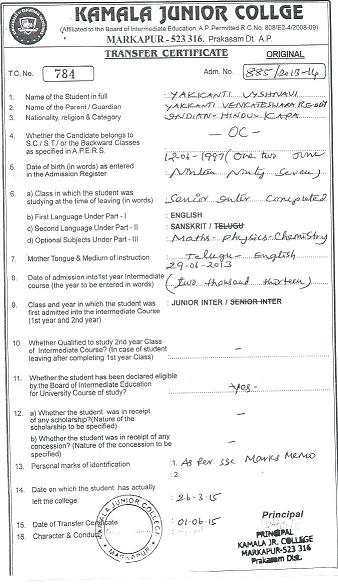 KAMALA JUNIOR COLLGE
(Affiliated to the Board of Intermediate Education, A.P. Permitted R.C.No. 808/E2-4/2008-09)
MARKAPUR - 523 316. Prakasam Dt. A.P.
TRANSFER CERTIFICATE ORIGINAL
T.C. No. 784 Adm. No. 885/2013-14
1. Name of the Student in full : YAKKANTI VYSHNAVI
2. Name of the Parent / Guardian : YAKKANTI VENKATESWARA REDDY
3. Nationality, religion & Category : INDIAN-HINDU-KAPA
4. Whether the Candidate belongs to
S.C./ S.T./ or the Backward Classes : - OC -
as specified in A.P.E.R.S.
5. Date of birth (in words) as entered : 12-06-1997 (One two June
in the Admission Register Ninteen Ninty Seven)
6. a) Class in which the student was
studying at the time of leaving (in words) : Senior inter completed
b) First Language Under Part - I : ENGLISH
c) Second Language Under Part - II : SANSKRIT / TELUGU
d) Optional Subjects Under Part - III : Maths-Physics-Chemistry
7. Mother Tongue & Medium of instruction : Telugu - English
8. Date of admission into 1st year Intermediate 29-06-2013
course (the year to be entered in words) : (two thousand thirteen)
9. Class and year in which the student was : JUNIOR INTER / SENIOR INTER
first admitted into the intermediate Course
(1st year and 2nd year)
10. Whether Qualified to study 2nd year Class
of Intermediate Course? (In case of student : -
leaving after completing 1st year Class)
11. Whether the student has been declared eligible
by the Board of Intermediate Education : -yes-
for University Course of study?
12. a) Whether the student was in receipt
of any scholarship?(Nature of the : -
scholarship to be specified)
b) Whether the student was in receipt of any
concession? (Nature of the concession to be : -
specified)
13. Personal marks of identification : 1. As Per SSC Marks Memo
: 2.
14. Date on which the student has actually
left the college : 26-3-15
15. Date of Transfer Certificate : 01-06-15 Principal
16. Character & Conduct
KAMALA JUNIOR COLLEGE
MARKAPUR
PRINCIPAL
KAMALA JR. COLLEGE
MARKAPUR-523 316
Prakasam Dist.